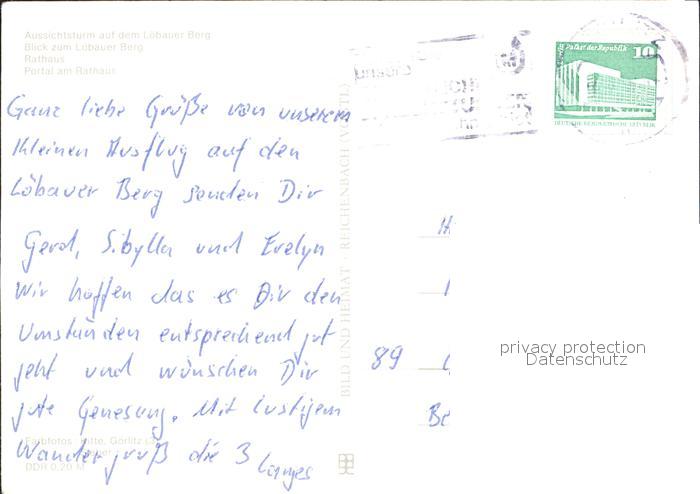 Aussichtsturm auf dem Löbauer Berg
Blick zum Löbauer Berg
Rathaus
Portal am Rathaus
Ganz liebe Grüße von unserem
kleinen Ausflug auf den
Löbauer Berg senden Dir
Gerd, Sibylla und Evelyn
Wir hoffen das es Dir den
Umständen entsprechend gut
geht und wünschen Dir
gute Genesung. Mit lustigem
Wandergruß die 3
Farbfotos: Görlitz
DDR 0,20 M
BILD UND HEIMAT · REICHENBACH (VOGTL)
Palast der Republik 10
DEUTSCHE DEMOKRATISCHE REPUBLIK
89
privacy protection
Datenschutz